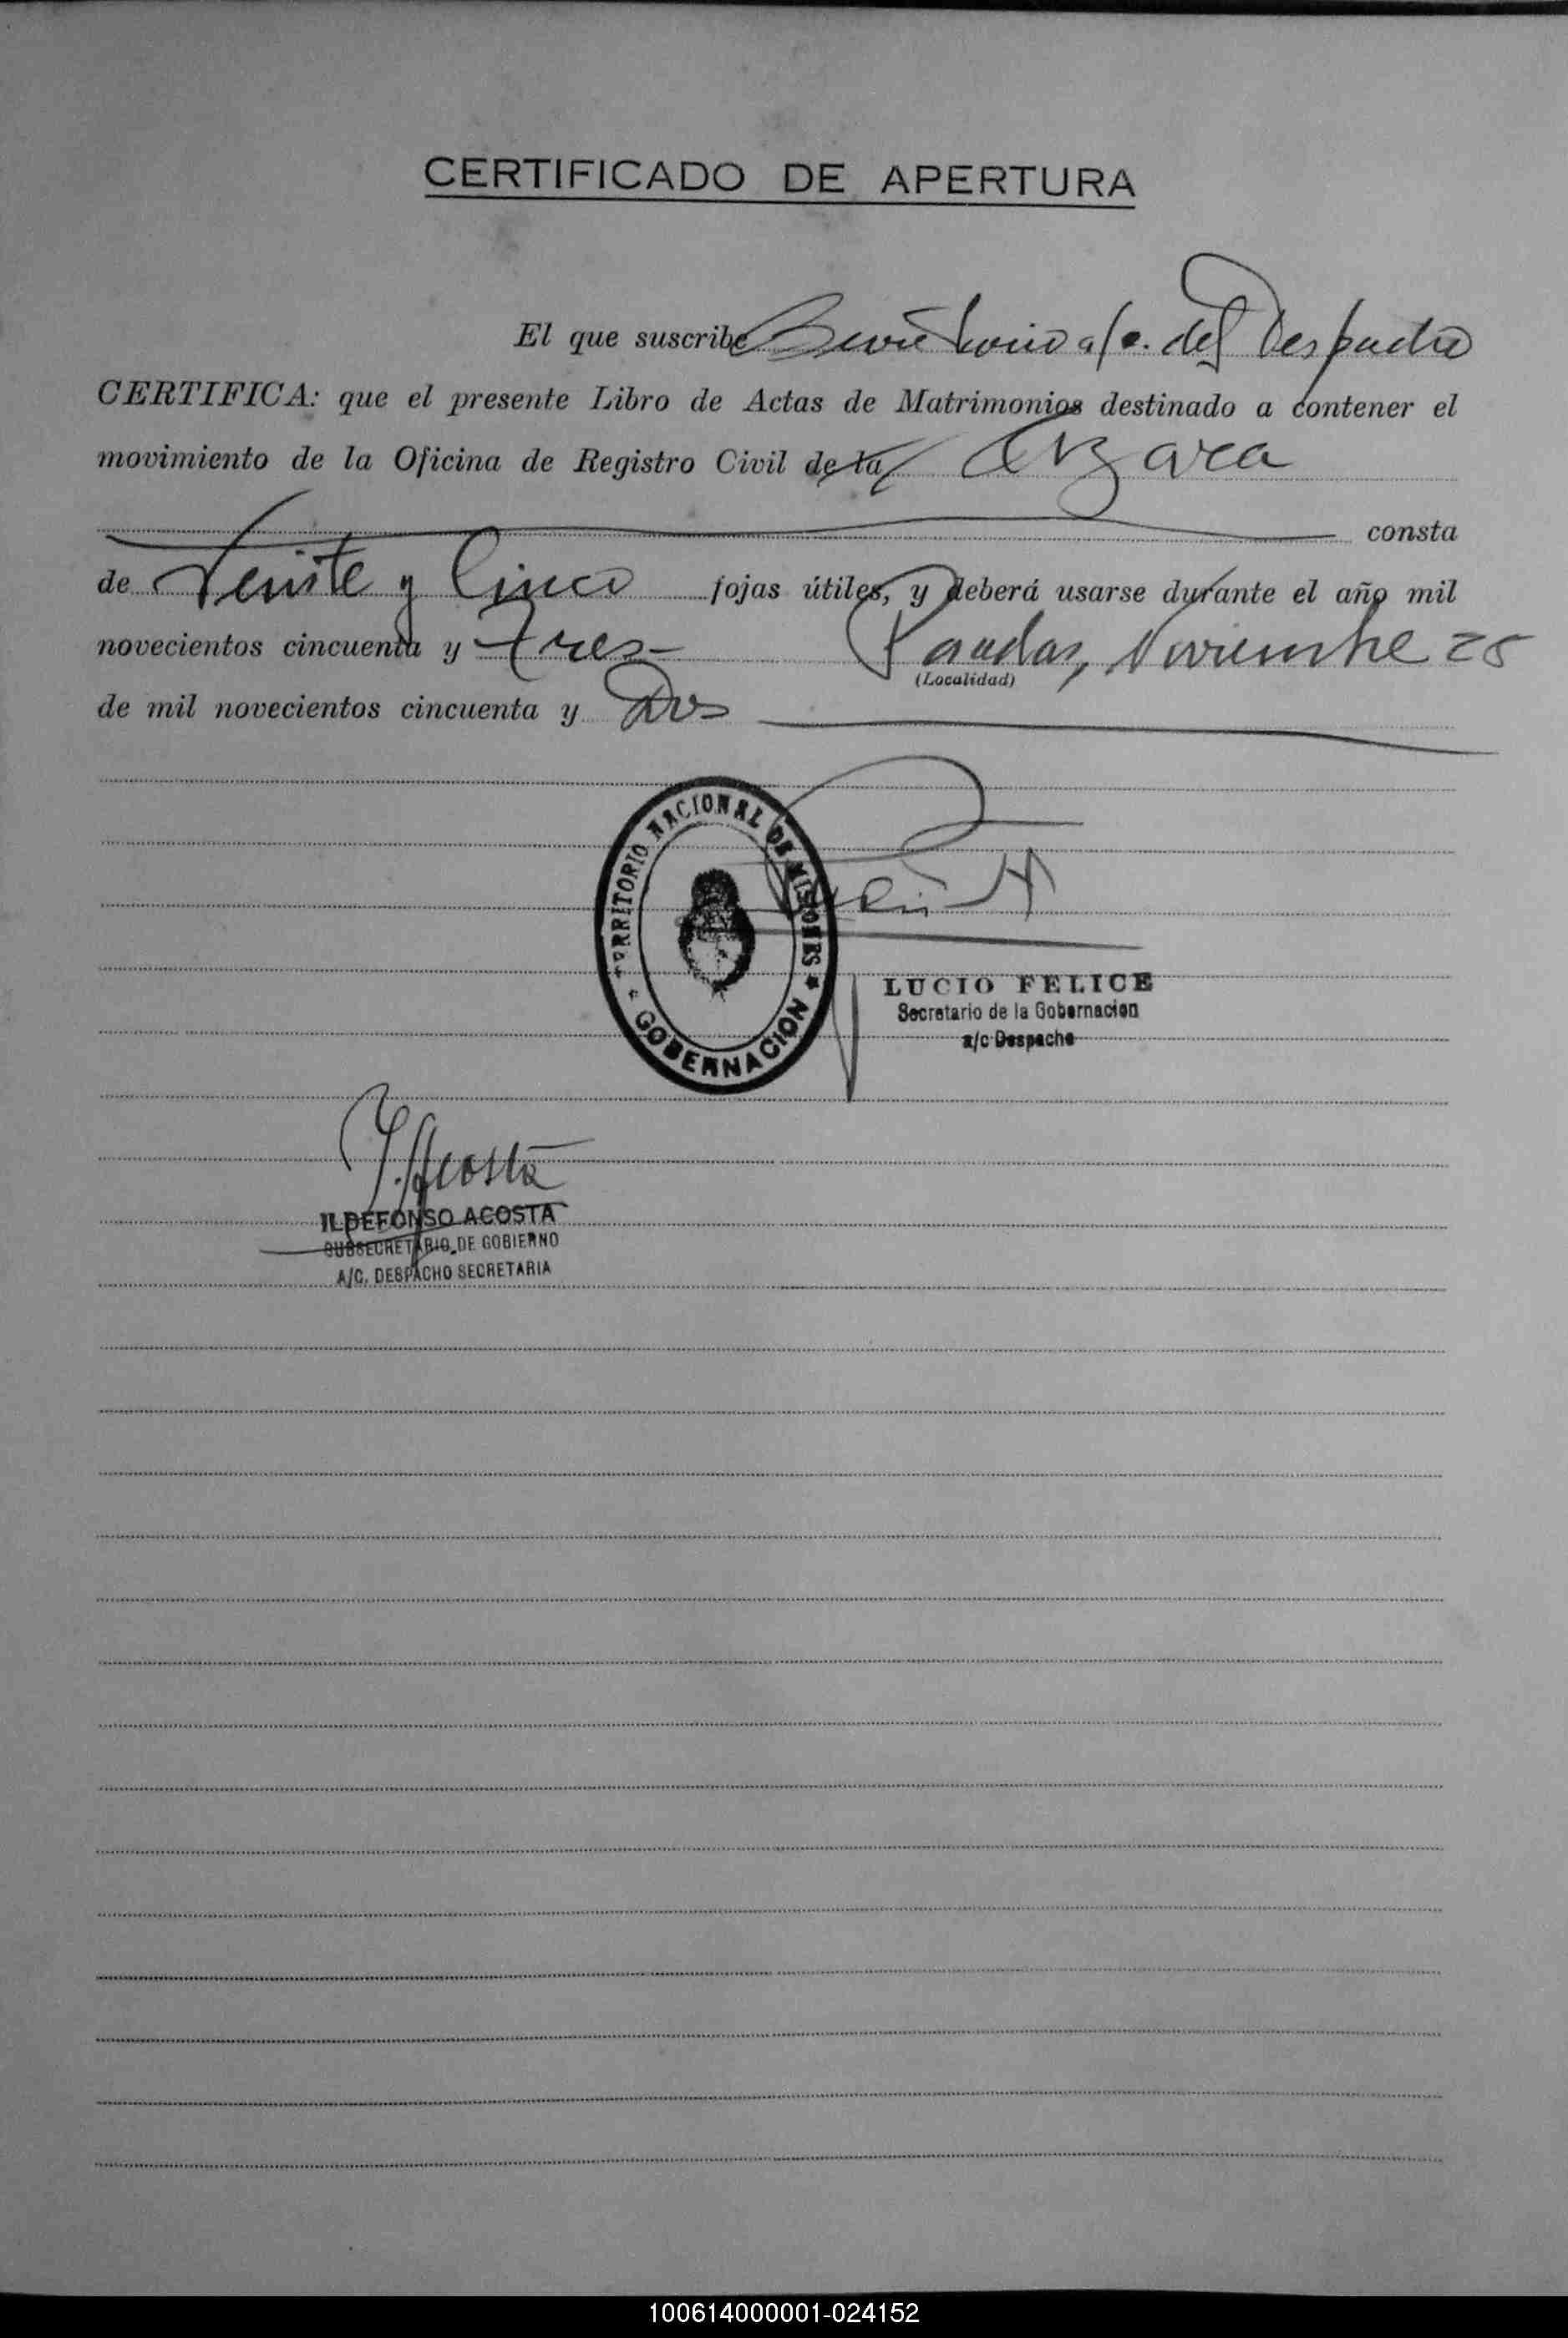 CERTIFICADO DE APERTURA
El que suscribe Secretario a/c. del Despacho
CERTIFICA: que el presente Libro de Actas de Matrimonios destinado a contener el
movimiento de la Oficina de Registro Civil de la Azara
consta
de Veinte y Cinco fojas útiles, y deberá usarse durante el año mil
novecientos cincuenta y tres Posadas, Noviembre 25
(Localidad)
de mil novecientos cincuenta y Dos
TERRITORIO NACIONAL DE MISIONES
* GOBERNACION *
LUCIO FELICE
Secretario de la Gobernacion
a/c Despacho
I. Acosta
ILDEFONSO ACOSTA
SUBSECRETARIO DE GOBIERNO
A/C. DESPACHO SECRETARIA
100614000001-024152